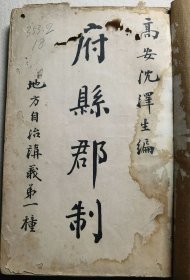 高安沈澤生編
府縣郡制
地方自治講義第一種
353.2